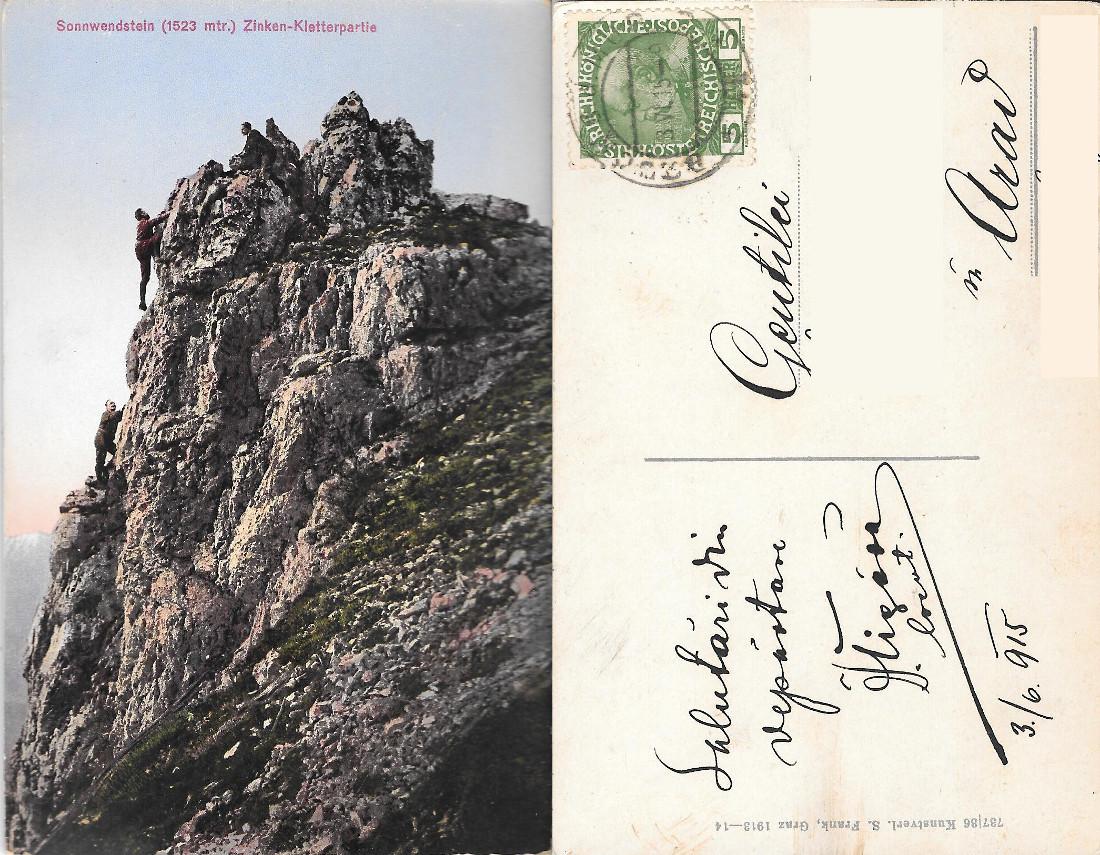 Sonnwendstein (1523 mtr.) Zinken-Kletterpartie
KAISERLICHE KÖNIGLICHE ÖSTERREICHISCHE POST
5 HELLER 5
Gentilei
in Arad
Salutări din
depărtare
3./6. 915
787|86 Kunstverl. S. Frank, Graz 1913—14